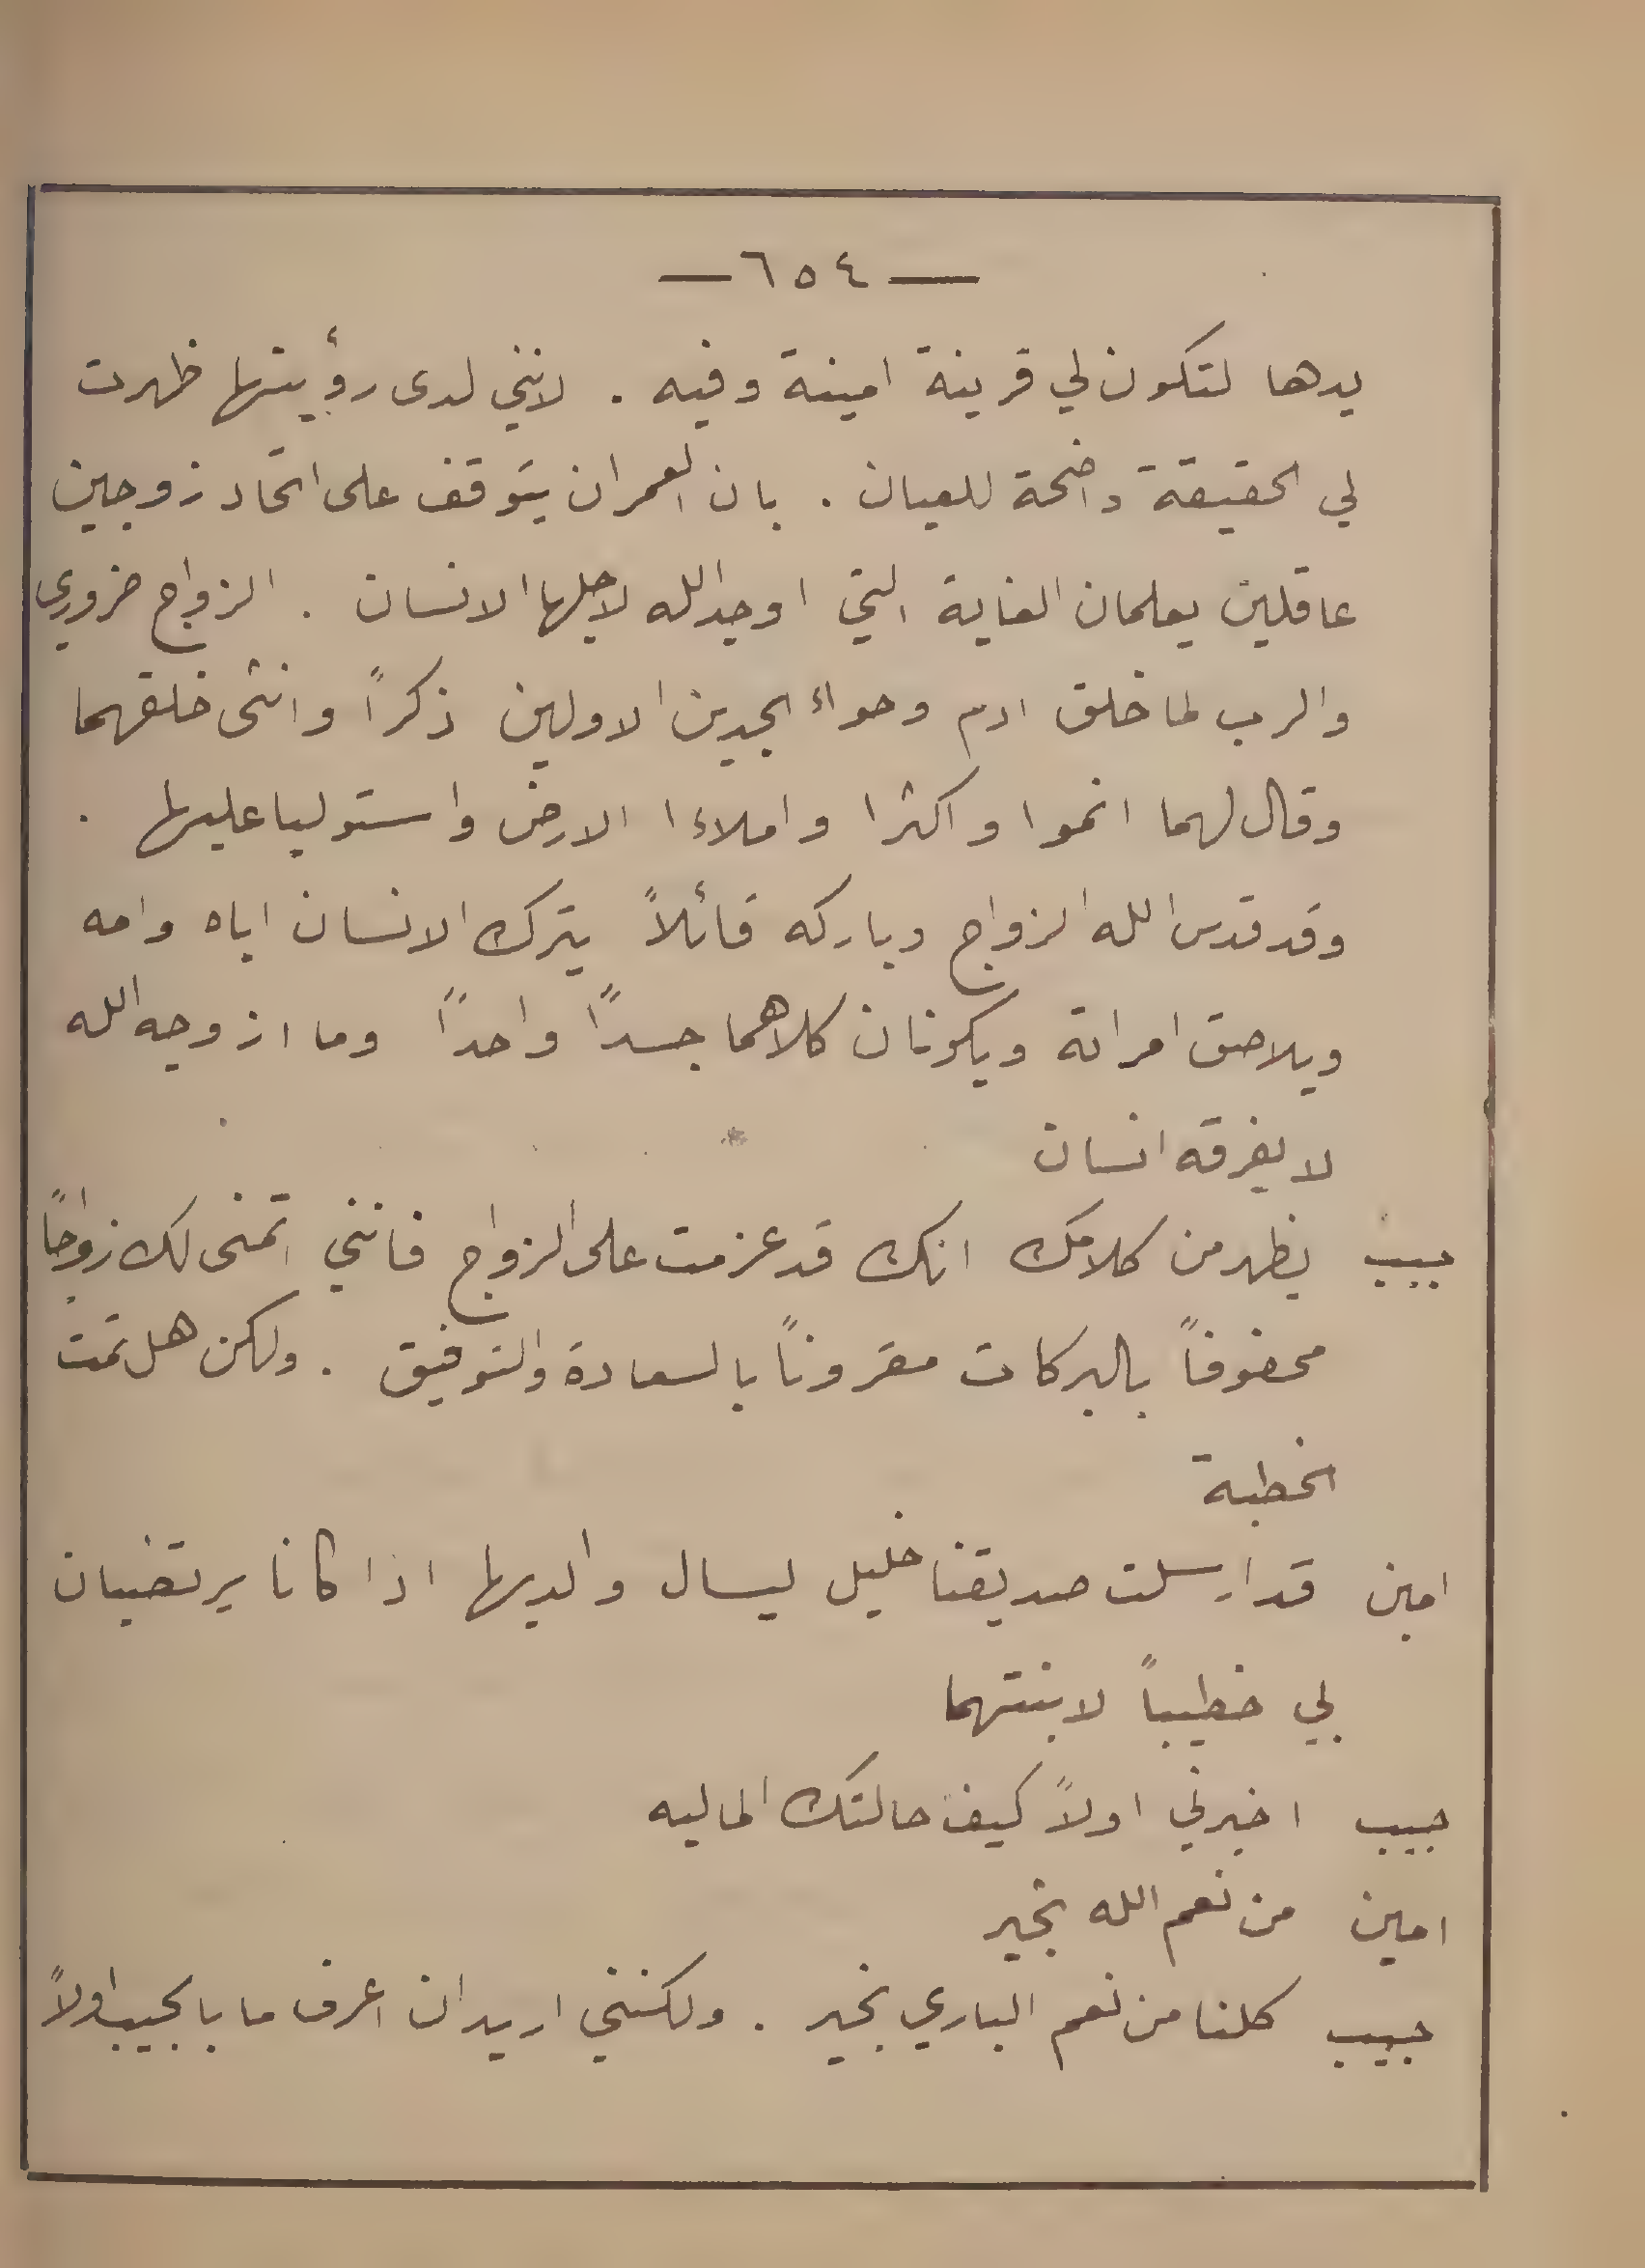 — ٦٥٤ —
يدها لتكون لي قرينة امينة وفيه . لانني لدى رؤيتها ظهرت
لي الحقيقة واضحة للعيان . بان العمران يتوقف على اتحاد زوجين
عاقلين يعلمان الغاية التي اوجد الله لاجلها الانسان . الزواج ضروري
والرب لما خلق ادم وحواء الجدين الاولين ذكراً وانثى خلقهما
وقال لهما انموا واكثرا واملاءا الارض واستوليا عليها .
وقد قدس الله الزواج وباركه قائلاً يترك الانسان اباه وامه
ويلاصق امراته ويكونان كلاهما جسداً واحداً وما ازوجه الله
لا يفرقه انسان
حبيب يظهر من كلامك انك قد عزمت على الزواج فانني اتمنى لك زواجاً
محفوفاً بالبركات مقروناً بالسعادة والتوفيق . ولكن هل تمت
الخطبة
امين قد ارسلت صديقنا خليل ليسال والديها اذا كانا يرتضيان
بي خطيباً لابنتهما
حبيب اخبرني اولاً كيف حالتك الماليه
امين من نعم الله بخير
حبيب كلنا من نعم الباري بخير . ولكنني اريد ان اعرف ما بالجيب اولاً